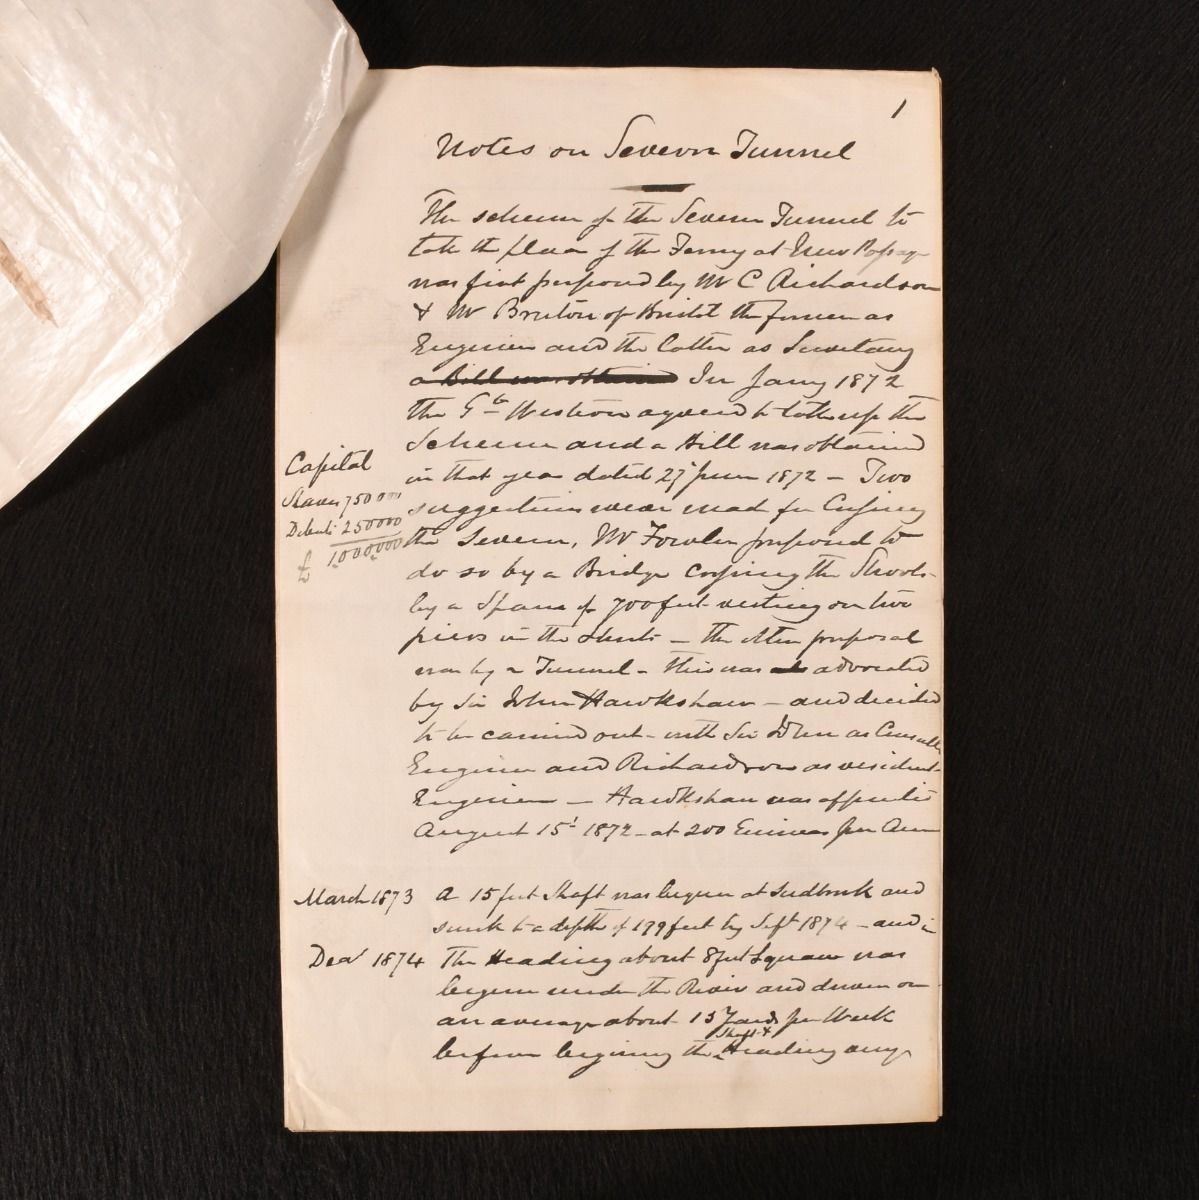 1
Notes on Severn Tunnel
The scheme of the Severn Tunnel to
take the place of the Ferry at New Passage
was first proposed by Mr C Richardson
& Mr Bruton of Bristol the former as
Engineer and the latter as Secretary
a Bill was obtained In Jany 1872
the Gt Western agreed to take up the
Scheme and a Bill was obtained
in that year dated 27 June 1872 – Two
suggestions were made for Crossing
the Severn, Mr Fowler proposed to
do so by a Bridge crossing the Shoots
by a Span of 700 feet resting on two
piers in the – the other proposal
was by a Tunnel – this was advocated
by Sir John Hawkshaw – and decided
to be carried out – with Sir John as Consulting
Engineer and Richardson as resident
Engineer – Hawkshaw was appointed
August 15t 1872 – at 200 Guineas per Ann
Capital
Shares 750000
Debents 250000
£ 1,000,000
March 1873 A 15 feet Shaft was begun at Sudbrook and
sunk to a depth of 199 feet by Sept 1874 – and in
Decr 1874 The Heading about 8 feet Square was
begun under the River and driven on
an average about 15 Yards per Week
Shaft &
before begining the Heading any